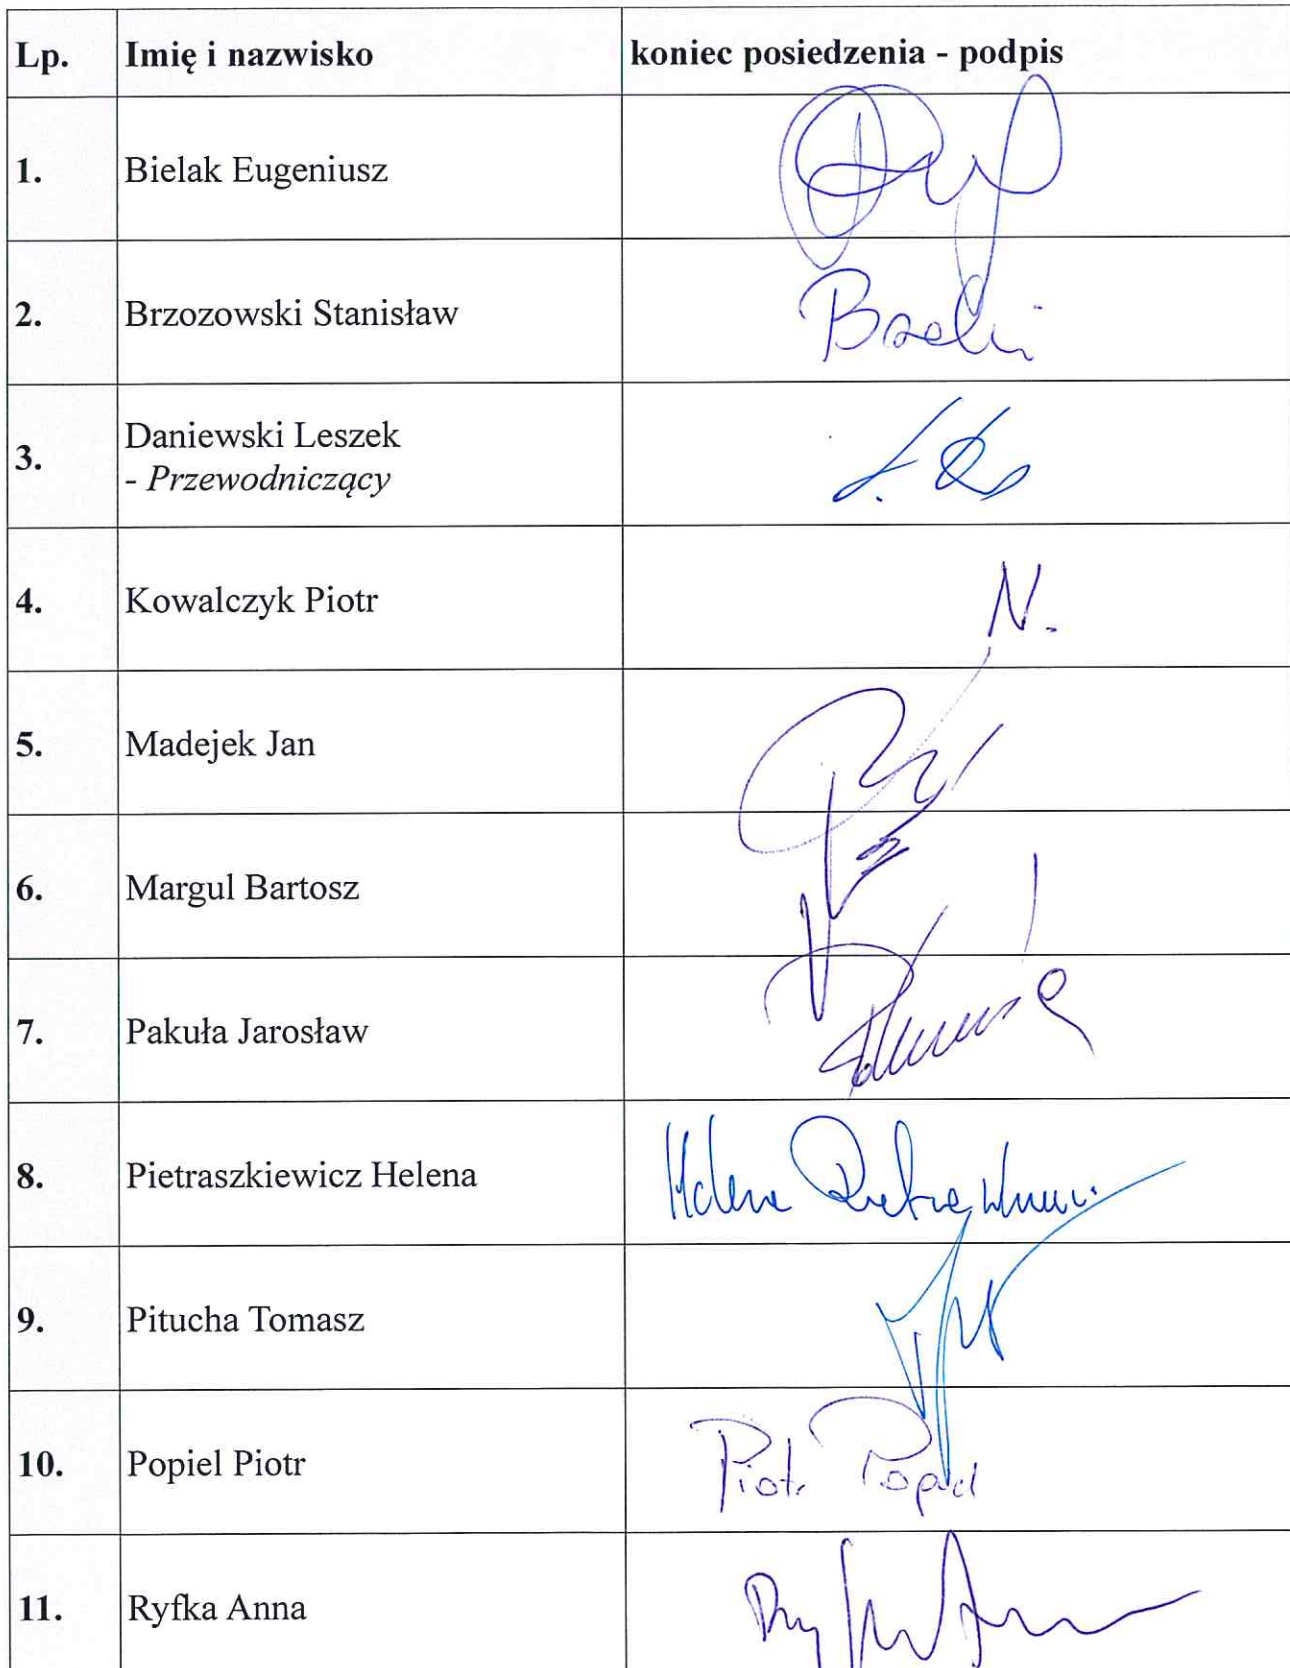 Lp. Imię i nazwisko koniec posiedzenia - podpis
1. Bielak Eugeniusz
2. Brzozowski Stanisław
3. Daniewski Leszek
- Przewodniczący
4. Kowalczyk Piotr N.
5. Madejek Jan
6. Margul Bartosz
7. Pakuła Jarosław
8. Pietraszkiewicz Helena Helena
9. Pitucha Tomasz
10. Popiel Piotr Piotr Popiel
11. Ryfka Anna